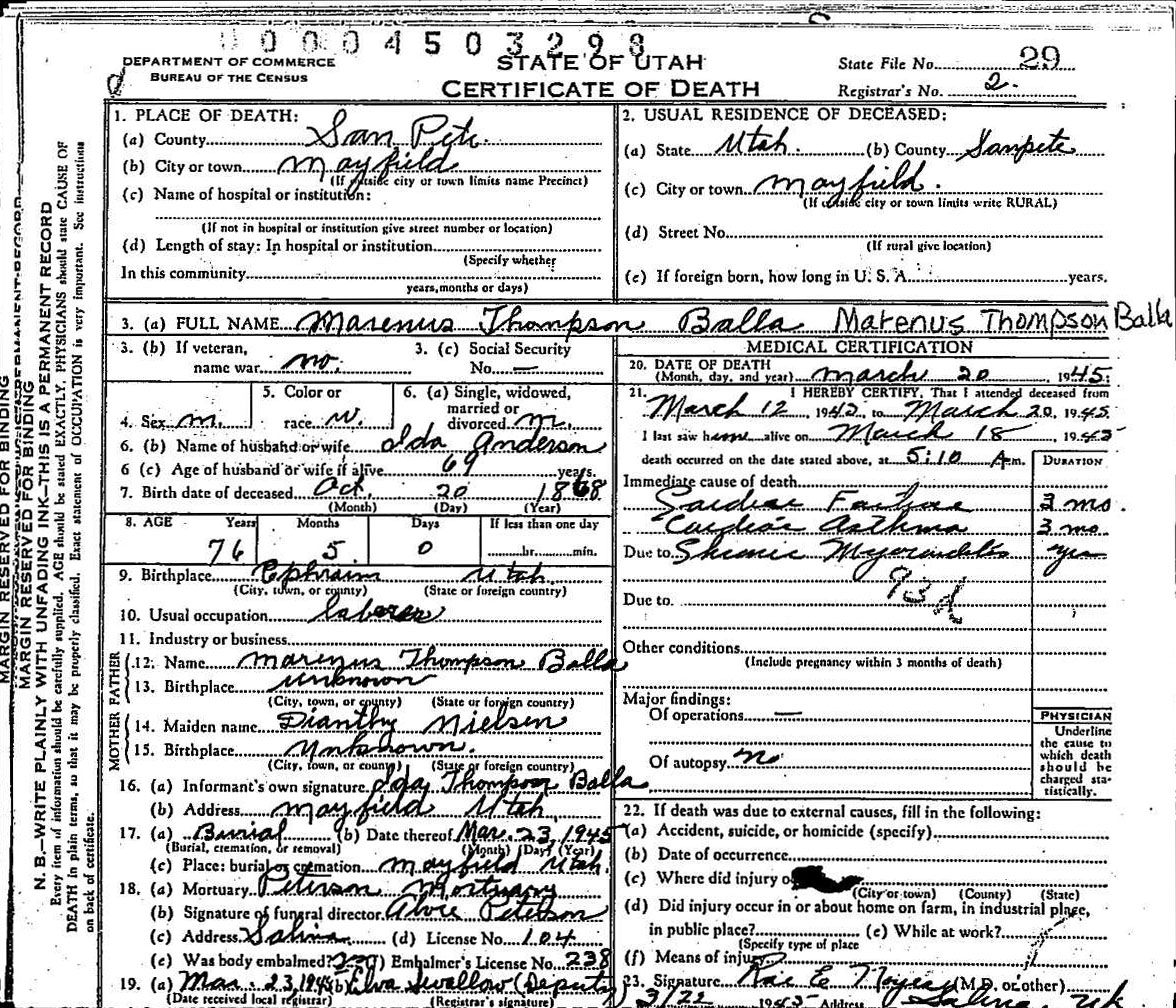 0004503298
DEPARTMENT OF COMMERCE
BUREAU OF THE CENSUS
STATE OF UTAH
CERTIFICATE OF DEATH
State File No. 29
Registrar's No. 2.
MARGIN RESERVED FOR BINDING
MARGIN RESERVED FOR BINDING
N. B.—WRITE PLAINLY WITH UNFADING INK—THIS IS A PERMANENT RECORD
Every item of information should be carefully supplied. AGE should be stated EXACTLY. PHYSICIANS should state CAUSE OF
DEATH in plain terms, so that it may be properly classified. Exact statement of OCCUPATION is very important. See instructions
on back of certificate.
1. PLACE OF DEATH:
(a) County San Pete
(b) City or town Mayfield
(If outside city or town limits name Precinct)
(c) Name of hospital or institution:
(If not in hospital or institution give street number or location)
(d) Length of stay: In hospital or institution
(Specify whether
In this community
years, months or days)
2. USUAL RESIDENCE OF DECEASED:
(a) State Utah. (b) County Sanpete
(c) City or town Mayfield.
(If outside city or town limits write RURAL)
(d) Street No.
(If rural give location)
(e) If foreign born, how long in U. S. A. years.
3. (a) FULL NAME Marenus Thompson Balla Marenus Thompson Balla
3. (b) If veteran,
name war no.
3. (c) Social Security
No. —
4. Sex m.
5. Color or
race w.
6. (a) Single, widowed,
married or
divorced m.
6. (b) Name of husband or wife Ida Anderson
6 (c) Age of husband or wife if alive 69 years.
7. Birth date of deceased Oct. 20 1868
(Month) (Day) (Year)
8. AGE Years Months Days If less than one day
76 5 0 hr. min.
9. Birthplace Ephraim Utah.
(City, town, or county) (State or foreign country)
10. Usual occupation laborer
11. Industry or business
FATHER
12. Name Marenus Thompson Balla
13. Birthplace Unknown
(City, town, or county) (State or foreign country)
MOTHER
14. Maiden name Dianthy Nielsen
15. Birthplace Unknown.
(City, town, or county) (State or foreign country)
16. (a) Informant's own signature Ida Thompson Balla
(b) Address Mayfield Utah
17. (a) Burial (b) Date thereof Mar. 23, 1945
(Burial, cremation, or removal) (Month) (Day) (Year)
(c) Place: burial or cremation Mayfield Utah.
18. (a) Mortuary Peterson Mortuary
(b) Signature of funeral director Alvie Peterson
(c) Address Salina (d) License No. 104
(e) Was body embalmed? Embalmer's License No. 238
19. (a) Mar. 23, 1945 (b) Elva Swallow (Deputy)
(Date received local registrar) (Registrar's signature)
MEDICAL CERTIFICATION
20. DATE OF DEATH
(Month, day, and year) March 20, 1945.
21. I HEREBY CERTIFY, That I attended deceased from
March 12, 1945, to March 20, 1945
I last saw him alive on March 18, 1945
death occurred on the date stated above, at 5:10 A.m. DURATION
Immediate cause of death
Cardiac Failure 3 mo.
Cardiac Asthma 3 mo
Due to Chronic Myocarditis yrs
93d
Due to.
Other conditions
(Include pregnancy within 3 months of death)
Major findings:
Of operations —
Of autopsy no
PHYSICIAN
Underline
the cause to
which death
should be
charged sta-
tistically.
22. If death was due to external causes, fill in the following:
(a) Accident, suicide, or homicide (specify)
(b) Date of occurrence
(c) Where did injury
(City or town) (County) (State)
(d) Did injury occur in or about home on farm, in industrial place,
in public place? (e) While at work?
(Specify type of place
(f) Means of injury
23. Signature Rae E. Noyes (M.D. or other)
3/22 1945 Address Salina Utah